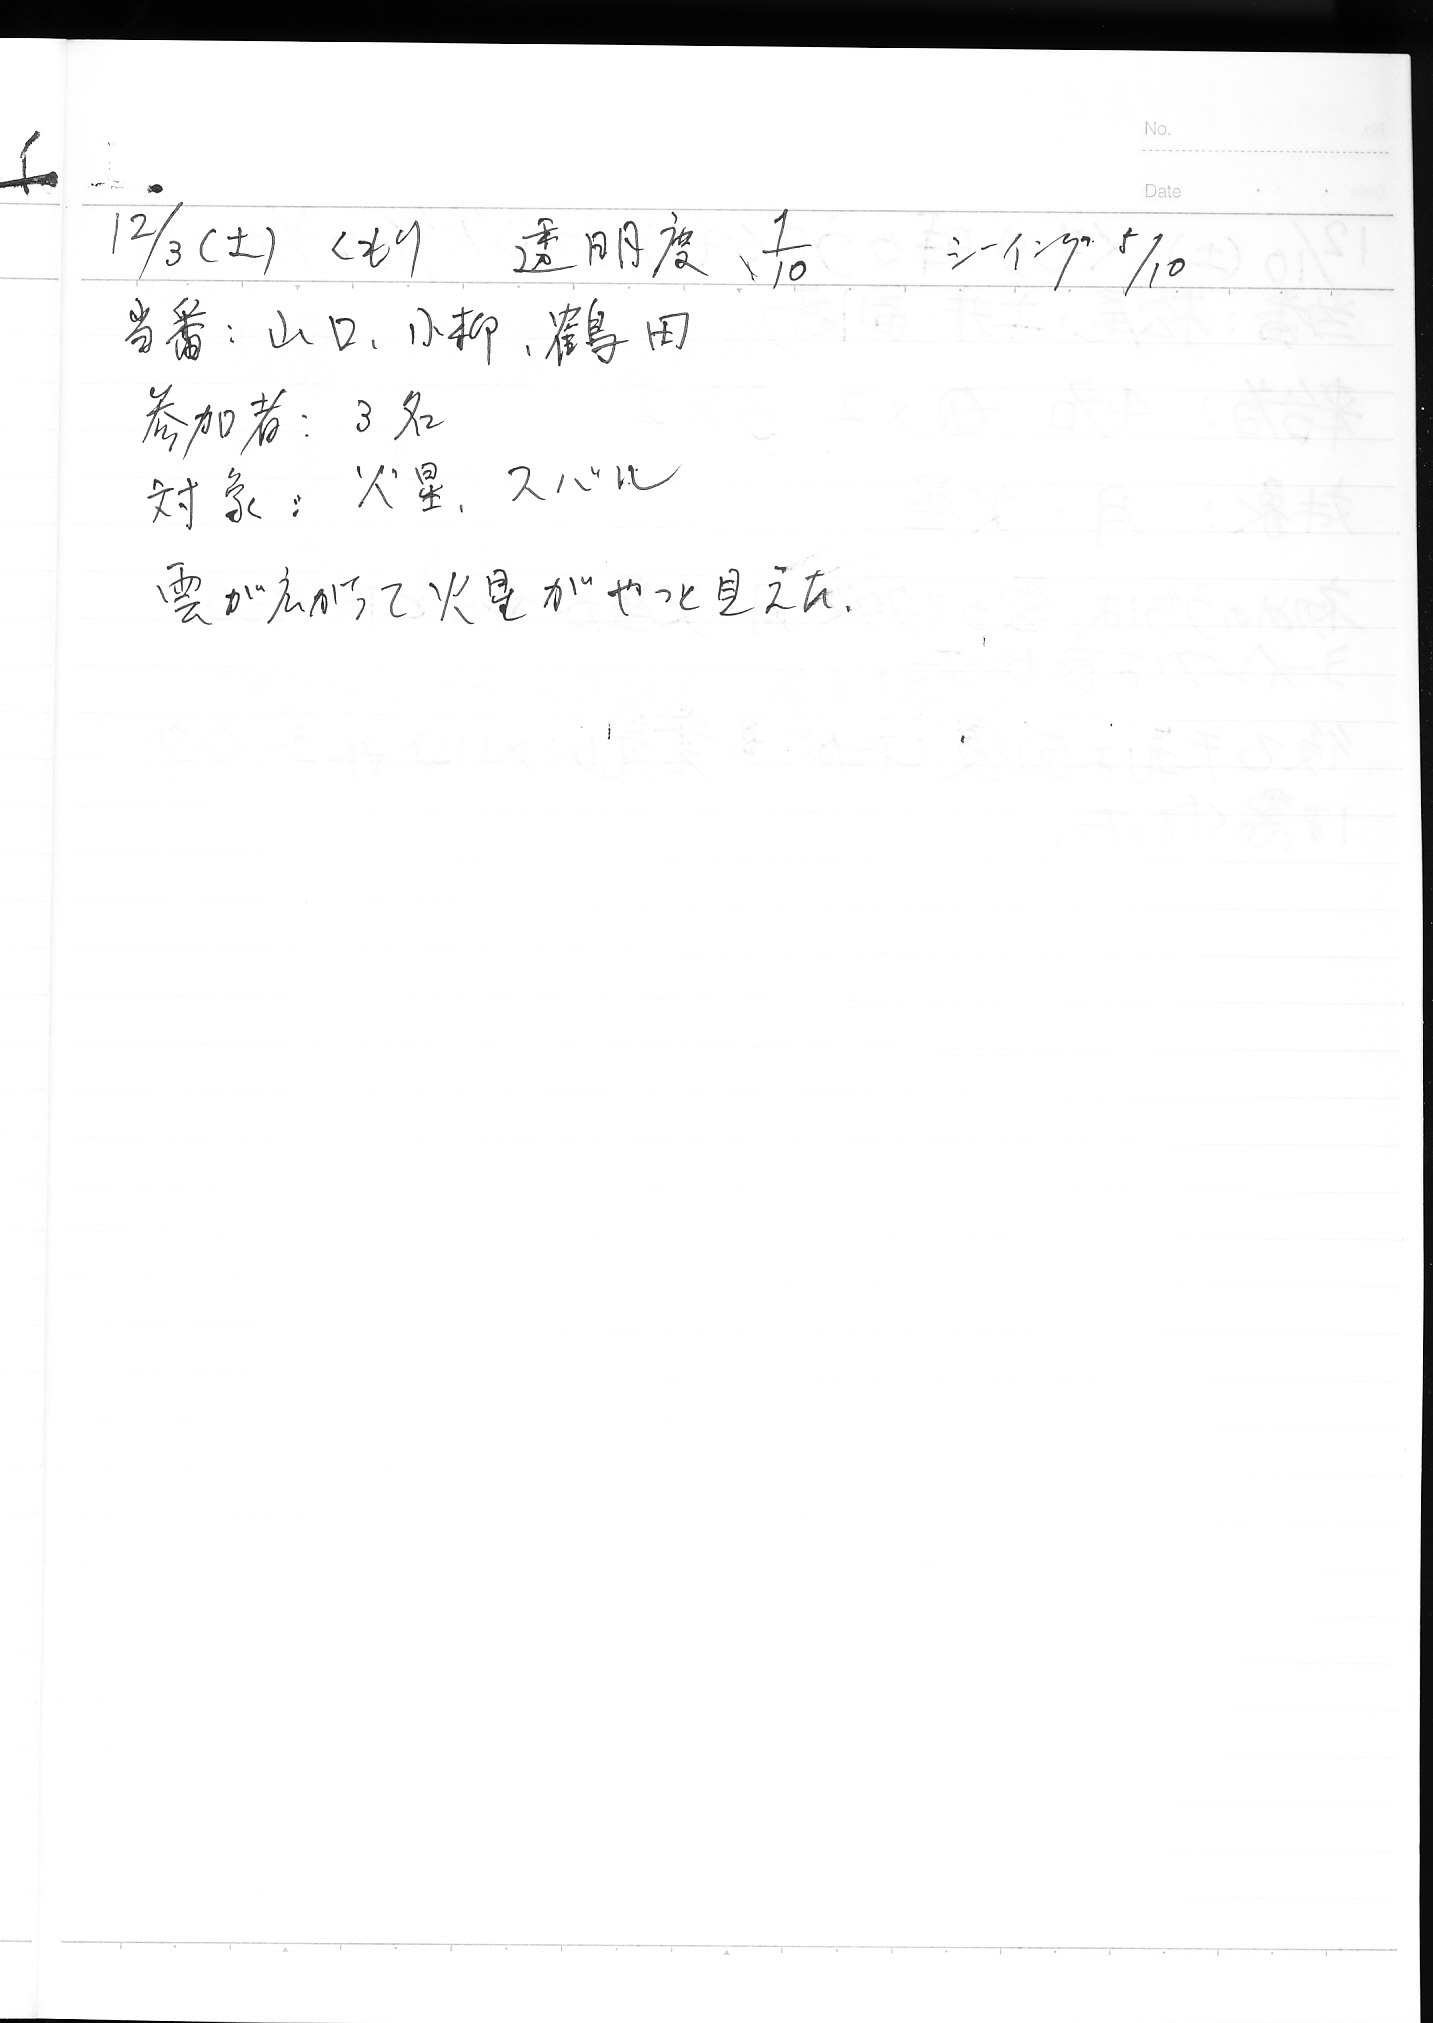 No.
Date
12/3(土) くもり 透明度 1/10 シーイング 5/10
当番: 山口、小柳、鶴田
参加者: 3名
対象: 火星、スバル
雲が広がって火星がやっと見えた.